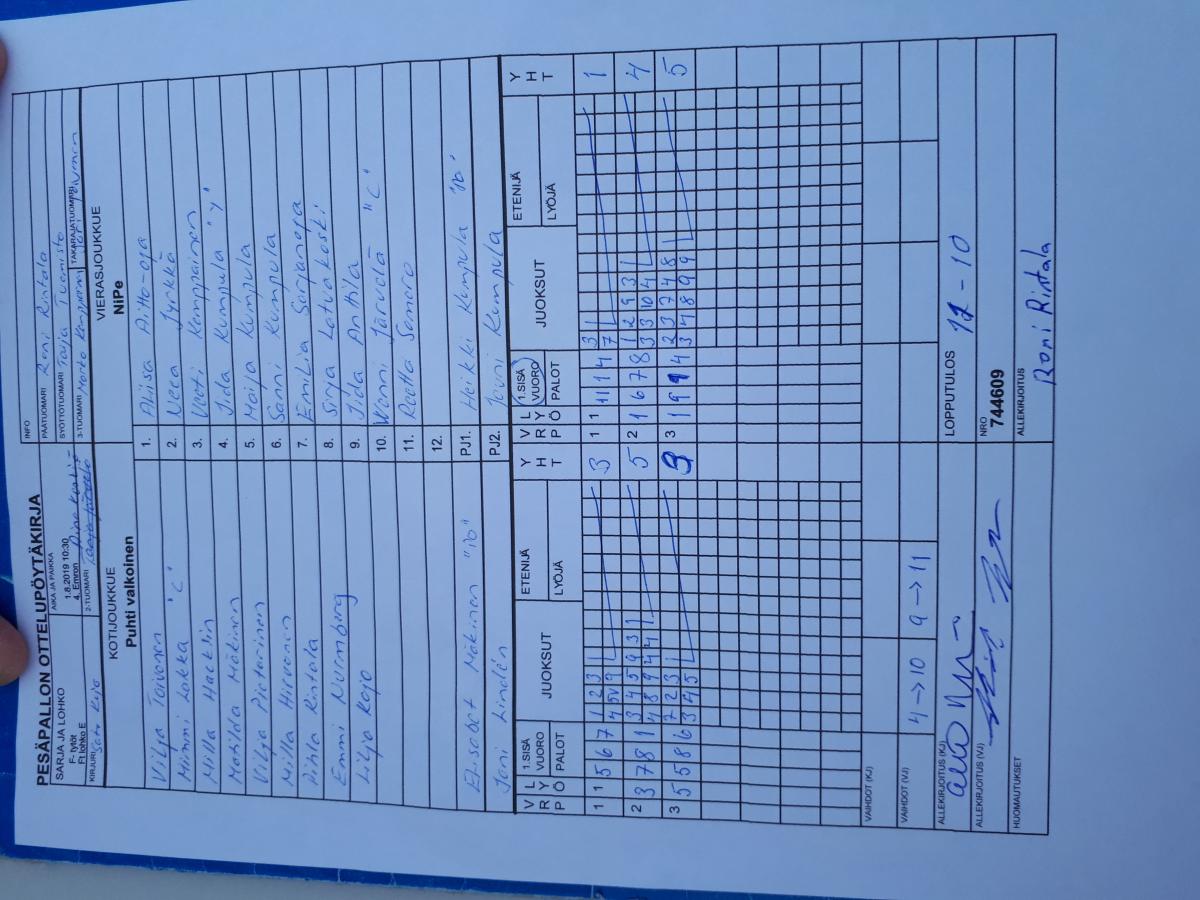 PESÄPALLON OTTELUPÖYTÄKIRJA
SARJA JA LOHKO
F- tytöt
Ft lohko E
AIKA JA PAIKKA
1.8.2019 10:30
4. Emron
INFO
PÄÄTUOMARI Roni Rintala
SYÖTTÖTUOMARI Tarja Tuomisto
KIRJURI Satu Kojo
2-TUOMARI
3-TUOMARI Marko Kemppainen
TAKARAJATUOMARI
KOTIJOUKKUE
Puhti valkoinen
VIERASJOUKKUE
NiPe
Vilja Toivonen 1. Aliisa Aitto-oja
Mimmi Lokka "C" 2. Neea Jyrkkä
Milla Hacklin 3. Venti Kemppainen
Matilda Mäkinen 4. Iida Kumpula "y"
Vilja Pietarinen 5. Maija Kumpula
Milla Hirvonen 6. Sanni Kumpula
Pihla Rintala 7. Emilia Sarjanoja
Emmi Nurmberg 8. Sinja Latvakoski
Lilja Kojo 9. Iida Anttila
10. Wenni Järvelä "C"
11. Reetta Samaro
12.
Elisabet Mäkinen "ib" PJ1. Heikki Kumpula "ib"
Joni Lindén PJ2. Jouni Kumpula
V R P
L Y Ö
1.SISÄ
VUORO
PALOT
JUOKSUT
ETENIJÄ
LYÖJÄ
Y H T
V R P
L Y Ö
1.SISÄ
VUORO
PALOT
JUOKSUT
ETENIJÄ
LYÖJÄ
Y H T
1 1 5 6 7 1 2 3 3 1 1 11 1 4 3 1
2 3 7 8 1 3 4 5 9 3 5 2 1 6 7 8 1 2 9 3 4
4 8 9 4 4 3 3 10 4
3 5 5 8 6 7 2 3 3 3 1 9 1 4 2 3 7 4 8 5
3 4 5 3 4 8 9 9
VAIHDOT (KJ)
VAIHDOT (VJ) 4→10 9→11
ALLEKIRJOITUS (KJ)
LOPPUTULOS 11 - 10
ALLEKIRJOITUS (VJ)
NRO
744609
HUOMAUTUKSET
ALLEKIRJOITUS
Roni Rintala